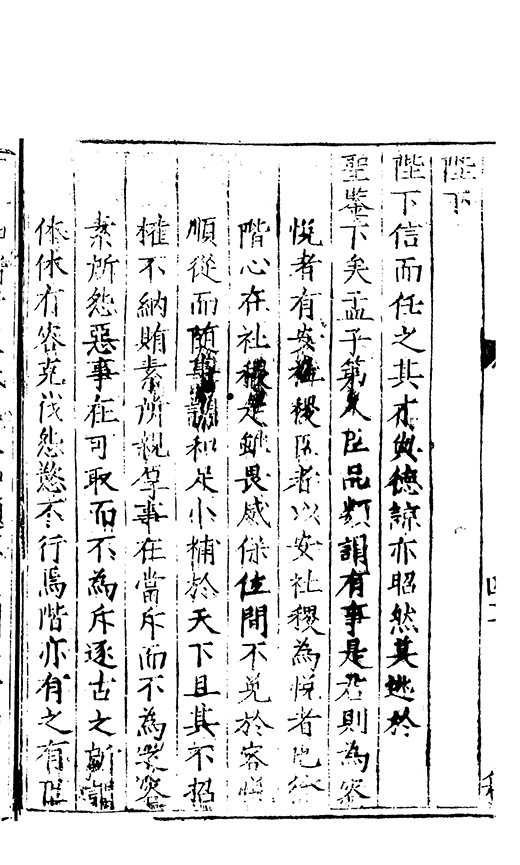 陛下
陛下信而任之其才與德諒亦昭然莫逃於
聖鑒下矣孟子第人臣品類謂有事是君則為容
悅者有安社稷臣者以安社稷為悅者也
階心在社稷是雖畏威保位間不免於容悅
順從而隨事調和足小補於天下且其不招
權不納賄素所親厚事在當斥而不為姿容
素所怨惡事在可取而不為斥逐古之所謂
休休有容克伐怨慾不行焉階亦有之有臣